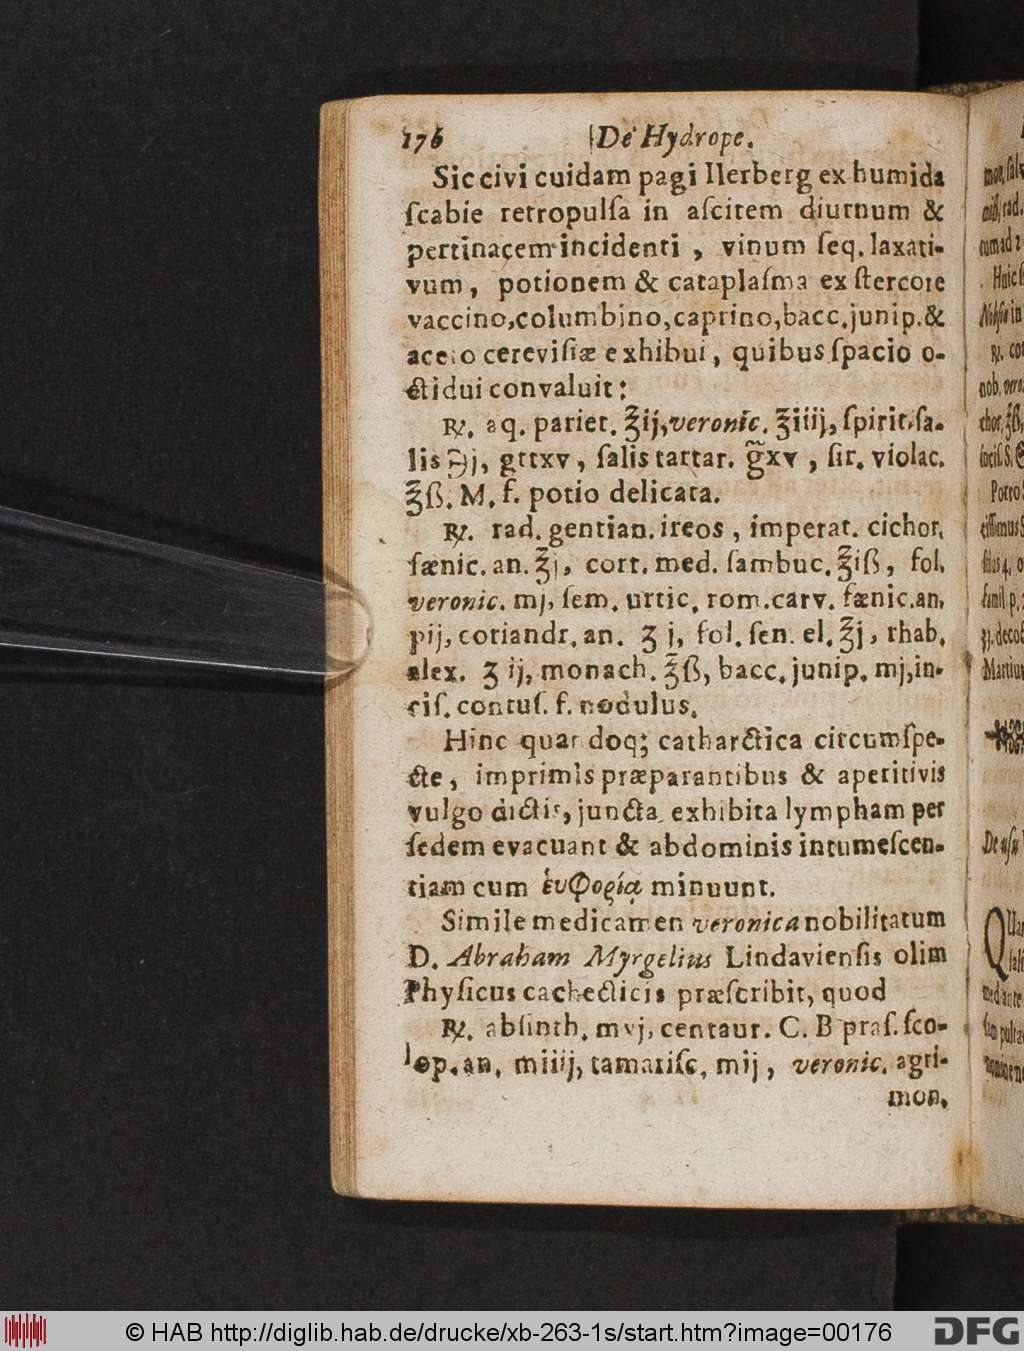 176 De Hydrope.
Sic civi cuidam pagi Ilerberg ex humida
ſcabie retropulſa in aſcitem diuturnum &
pertinacem incidenti, vinum ſeq. laxati-
vum, potionem & cataplaſma ex ſtercore
vaccino, columbino, caprino, bacc. junip. &
aceto cereviſiæ exhibui, quibus ſpacio o-
ctidui convaluit:
℞. aq. pariet. ℥ij, veronic. ℥iiij, ſpirit. ſa-
lis ℈j, gttxv, ſalis tartar. g̃xv, ſir. violac.
℥ß. M. f. potio delicata.
℞. rad. gentian. ireos, imperat. cichor.
fænic. an. ℥j, cort. med. ſambuc. ℥iß, fol.
veronic. mj, ſem. urtic. rom. carv. fænic. an.
pij, coriandr. an. ʒ j, fol. ſen. el. ℥j, rhab.
alex. ʒ ij, monach. ℥ß, bacc. junip. mj, in-
ciſ. contuſ. f. nodulus.
Hinc quandoq; catharctica circumſpe-
cte, imprimis præparantibus & aperitivis
vulgo dictis, juncta exhibita lympham per
ſedem evacuant & abdominis intumeſcen-
tiam cum ἐυφορίᾳ minuunt.
Simile medicamen veronica nobilitatum
D. Abraham Myrgelius Lindavienſis olim
Phyſicus cachecticis præſcribit, quod
℞. abſinth. mvj, centaur. C. B praſ. ſco-
lop. an. miiij, tamariſc. mij, veronic. agri-
mon.
© HAB http://diglib.hab.de/drucke/xb-263-1s/start.htm?image=00176
DFG